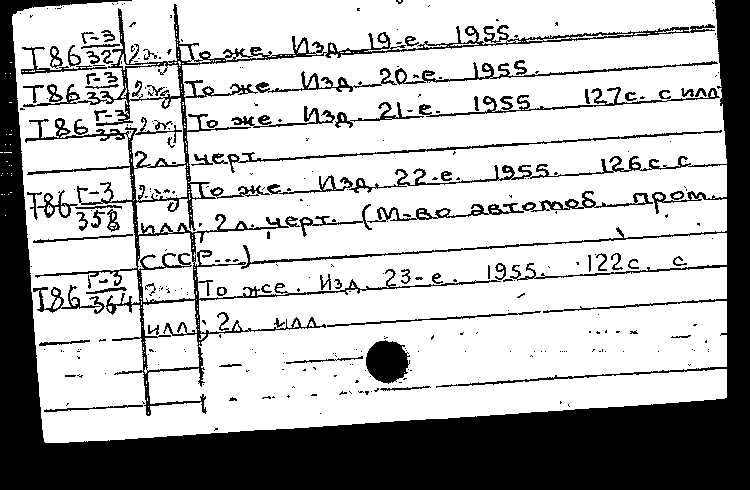 Т86 Г-3/327 2 экз. То же. Изд. 19-е. 1955.
Т86 Г-3/334 2 экз То же. Изд. 20-е. 1955.
Т86 Г-3/337 2 экз То же. Изд. 21-е. 1955. 127с. с илл;
2л. черт.
Т86 Г-3/358 2 экз То же. Изд. 22-е. 1955. 126с. с
илл; 2л. черт. (М-во автомоб. пром.
СССР...)
Т86 Г-3/364 То же. Изд. 23-е. 1955. 122с. с
илл.; 2л. илл.